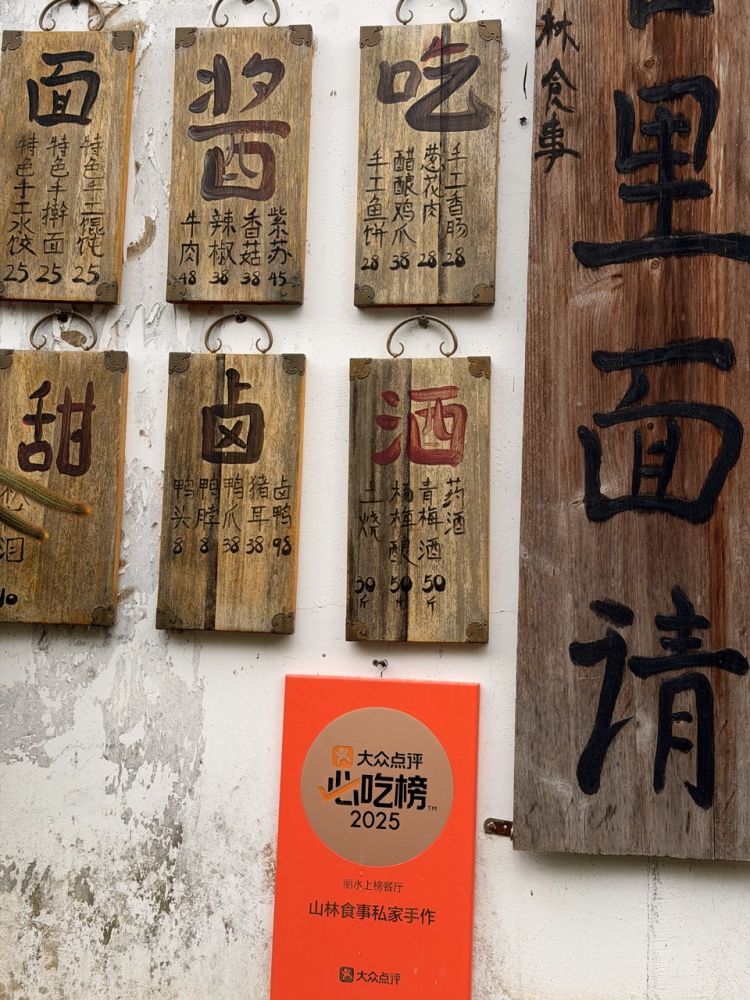 面
特色手工馄饨 25
特色手擀面 25
特色手工水饺 25
酱
紫苏 45
香菇 38
辣椒 38
牛肉 48
吃
手工香肠 28
葱花肉 28
醋酿鸡爪 38
手工鱼饼 28
甜
泪
10
卤
卤鸭 98
猪耳 38
鸭爪 38
鸭脖 8
鸭头 8
酒
药酒
青梅酒 50斤
杨梅酿 50斤
土烧 30斤
林食事
里面请
大众点评
必吃榜™
2025
丽水上榜餐厅
山林食事私家手作
大众点评